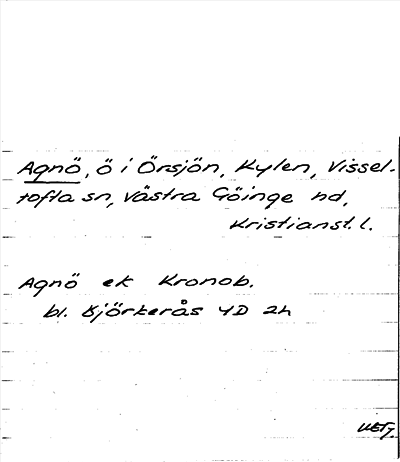 Agnö, ö i Örsjön, Kylen, Vissel-
tofta sn, Västra Göinge hd,
Kristianst. l.
Agnö ek Kronob.
bl. Björkerås 4D 2h